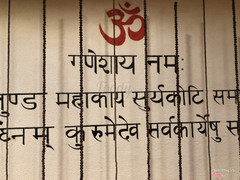 ॐ
गणेशाय नमः
तुण्ड महाकाय सुर्यकोटि सम
र्हनम् कुरुमेदेव सर्वकार्येषु स